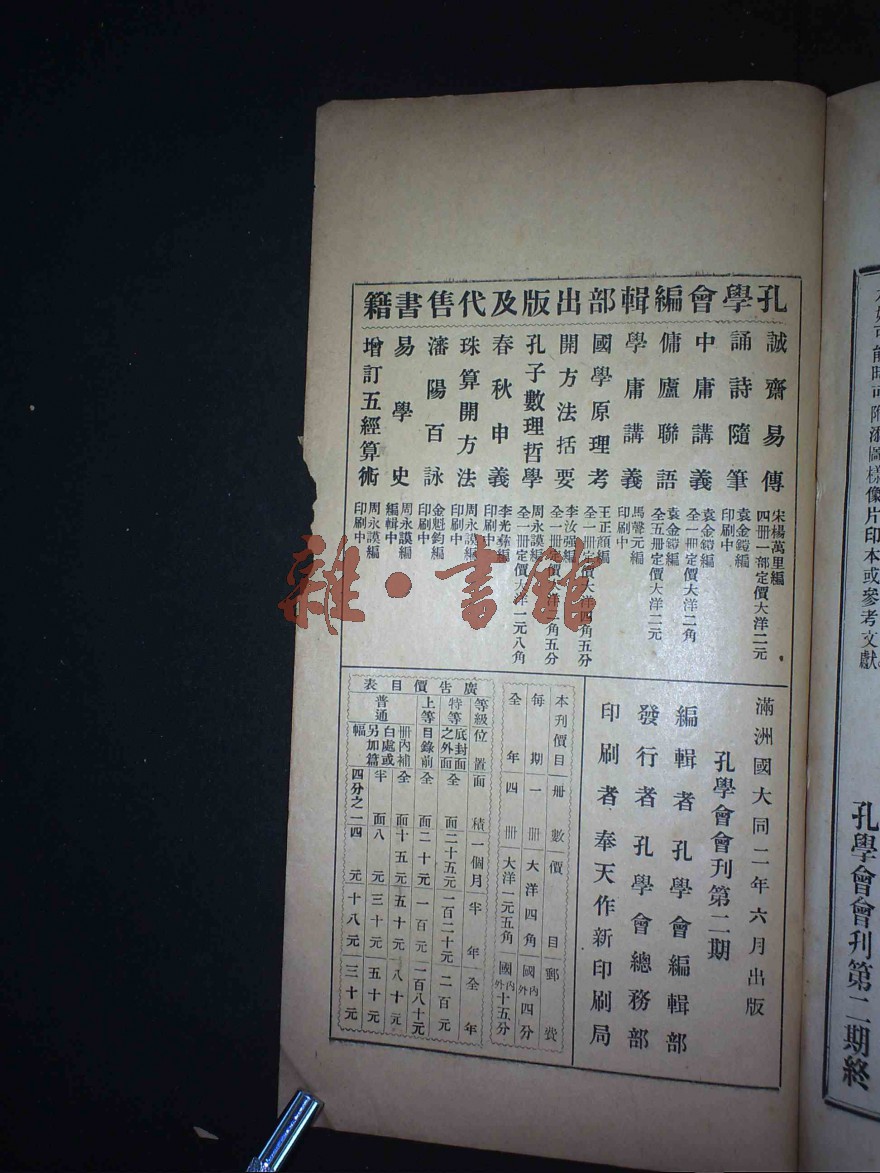 孔學會編輯部出版及代售書籍
誠齋易傳
宋楊萬里編
四册一部定價大洋二元
誦詩隨筆
袁金鎧編
印刷中
中庸講義
袁金鎧編
全一册定價大洋二角
傭廬聯語
袁金鎧編
全五册定價大洋二元
學庸講義
馬聲元編
印刷中
國學原理考
王正顏編
全一册定價大洋四角五分
開方法括要
李汝强編
全一册定價大洋二角五分
孔子數理哲學
周永謨編
全一册定價大洋一元八角
春秋申義
李光彝編
印刷中
珠算開方法
周永謨編
印刷中
瀋陽百詠
金魁鈞編
印刷中
易學史
周永謨編
編輯中
增訂五經算術
周永謨編
印刷中
滿洲國大同二年六月出版
孔學會會刊第二期
編輯者孔學會編輯部
發行者孔學會總務部
印刷者奉天作新印刷局
本刊價目册數價目郵費
每期一册大洋四角國內四分
外
全年四册大洋一元五角國內十五分
外
廣告價目表
等級位置面積一個月半年全年
特等底封面之外面全面二十五元一百二十元二百元
上等目錄前全面二十元一百元一百八十元
普通册內補白處或另加篇幅
全面十五元五十元八十元
半面八元三十元五十元
四分之一四元十八元三十元
孔學會會刊第二期終
雜·書館